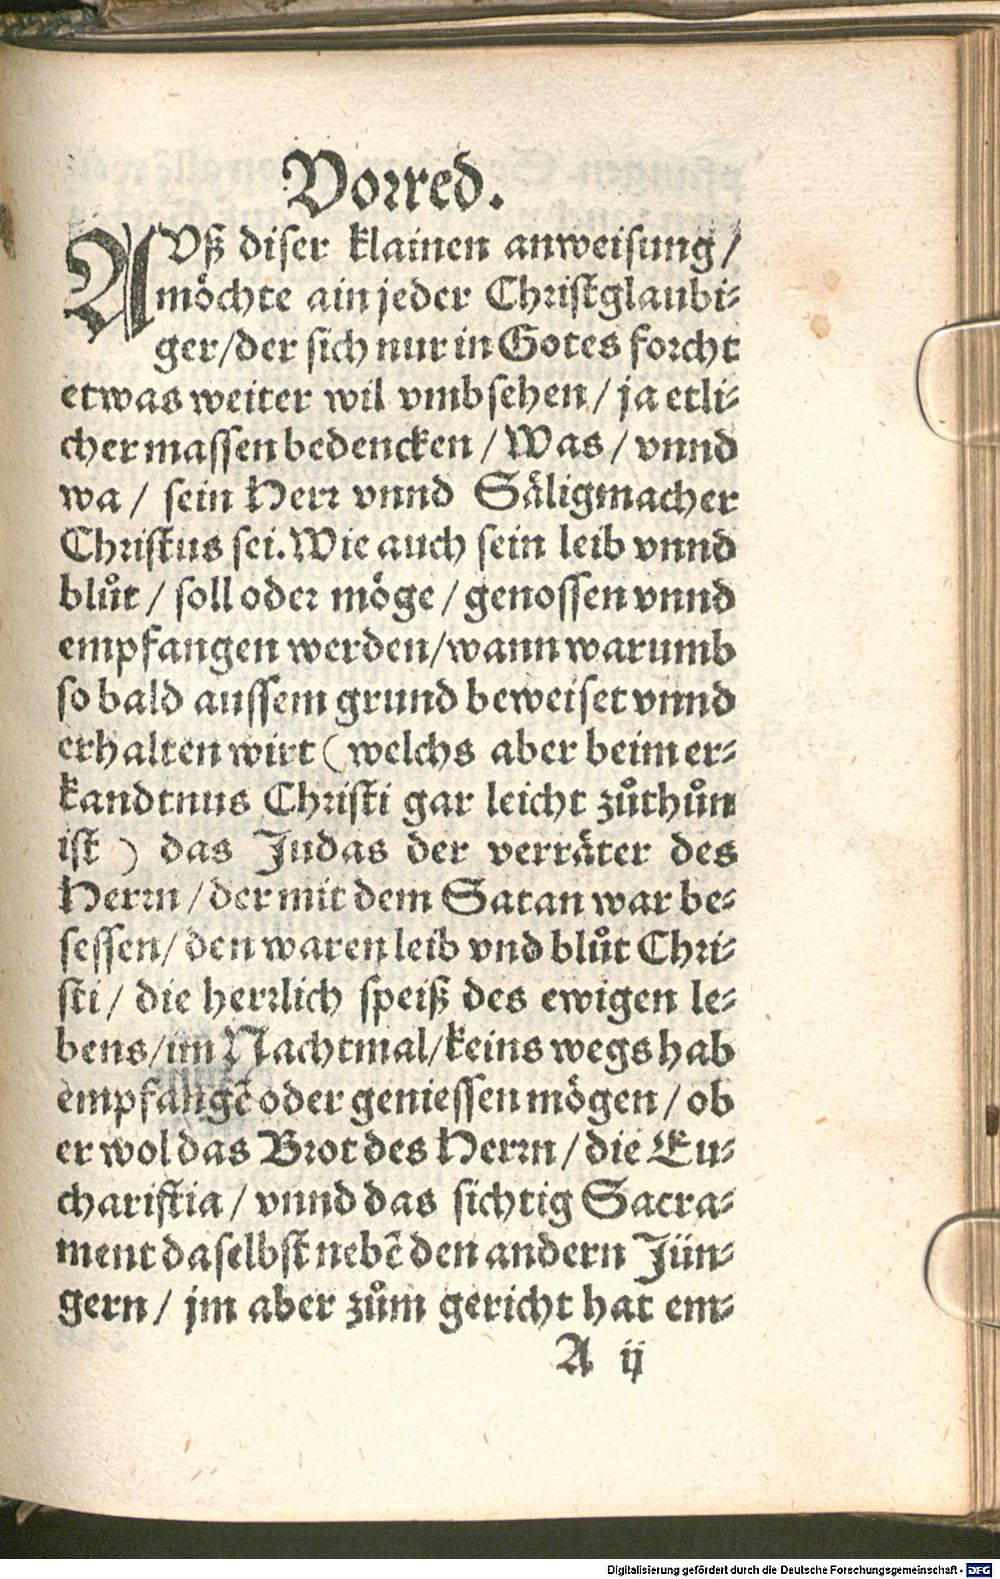 Vorred.
AVß diser klainen anweisung/
möchte ain jeder Christglaubi⸗
ger/der sich nur in Gotes forcht
etwas weiter wil vmbsehen/ ja etli⸗
cher massen bedencken/ Was/ vnnd
wa/ sein Herr vnnd Säligmacher
Christus sei. Wie auch sein leib vnnd
blůt/ soll oder möge/ genossen vnnd
empfangen werden/wann warumb
so bald aussem grund beweiset vnnd
erhalten wirt (welchs aber beim er⸗
kandtnus Christi gar leicht zůthůn
ist) das Judas der verräter des
Herrn/ der mit dem Satan war be⸗
sessen/ den waren leib vnd blůt Chri⸗
sti/ die herrlich speiß des ewigen le⸗
bens/im Nachtmal/keins wegs hab
empfangē oder geniessen mögen/ ob
er wol das Brot des Herrn/ die Eu⸗
charistia/ vnnd das sichtig Sacra⸗
ment daselbst nebē den andern Jün⸗
gern/ jm aber zům gericht hat em⸗
A ij
Digitalisierung gefördert durch die Deutsche Forschungsgemeinschaft - DFG